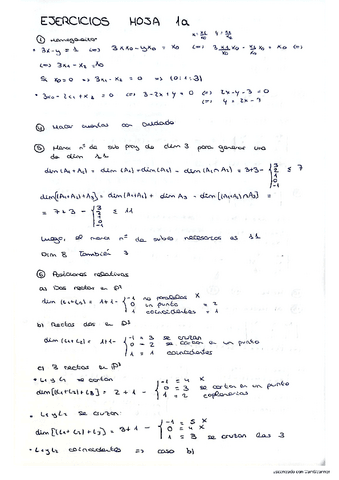 EJERCICIOS HOJA 1a
① Homogeneizar
• 3x-y = 1 ⇔ 3x₁x₀ - yx₀ = x₀ ⇔
⇔ 3x₁ - x₂ = x₀
Si x₀=0 ⇒ 3x₁ - x₂ = 0 ⇒ (0:1:3)
• 3x₀ - 2x₁ + x₂ = 0 ⇔ 3-2x+y=0 ⇔ 2x-y-3=0
⇔ y = 2x-3
④ Hacer cuentas con cuidado
⑤ Menor nº de sub proy de dim 3 para generar uno
de dim 11
dim (A₁+A₂) = dim (A₁) + dim(A₂) - dim (A₁∩A₂) = 3+3- ≤ 7
dim[(A₁+A₂)+A₃] = dim (A₁+A₂) + dim A₃ - dim[(A₁+A₂)∩A₃] =
= 7+3 - ≤ 11
Luego, el menor nº de subes necesarios es
Dim 8 También 3
⑥ Posiciones relativas
a) Dos rectas en P²
dim (L₁+L₂) = 1+1- -1 no paralelas X
0 un punto = 2
1 coincidentes = 1
b) Rectas dos en P³
dim (L₁+L₂) = 1+1- -1 = 3 se cruzan
0 = 2 se cortan en un punto
1 = 1 coincidentes
c) 3 rectas en P³
• L₁ y L₂ se cortan
dim[(L₁+L₂)+L₃] = 2+1 - -1 = 4 X
0 = 3 se cortan en un punto
1 = 2 coplanarias
• L₁ y L₂ se cruzan:
dim[(L₁+L₂)+L₃] = 3+1 - -1 = 5 X
0 = 4 X
1 = 3 se cruzan las 3
• L₁ y L₂ coincidentes ⇒ caso b)
Escaneado con CamScanner